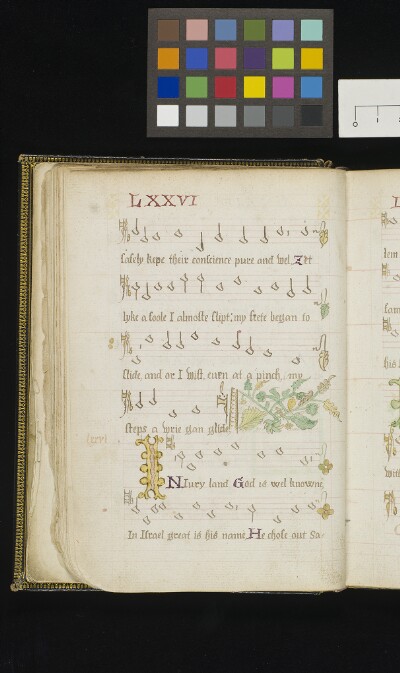 LXXVI
safely kepe their conscience pure and wel, Zet
lyke a foole I almoste slipt, my fete began to
slide, and or I wist, euen at a pinch, my
steps a wrie gan glide
INIury land God is wel knowne
In Israel great is his name, He chose out Sa-